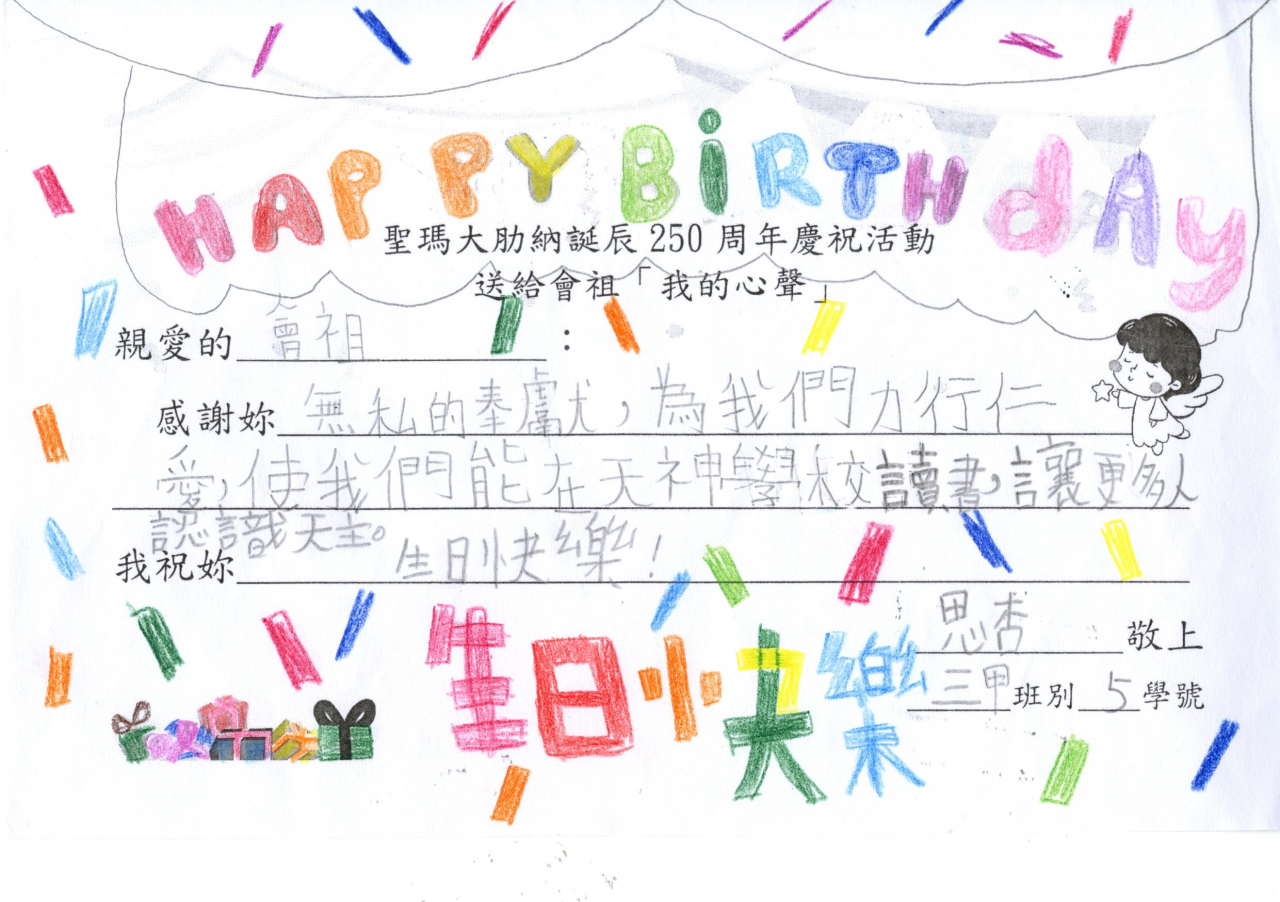 HAPPY BiRTH dAy
聖瑪大肋納誕辰 250 周年慶祝活動
送給會祖「我的心聲」
親愛的 會祖 :
感謝妳 無私的奉獻,為我們力行仁
愛,使我們能在天神學校讀書,讓更多人
認識天主。
我祝妳 生日快樂!
思杏 敬上
三甲 班別 5 學號
生日快樂